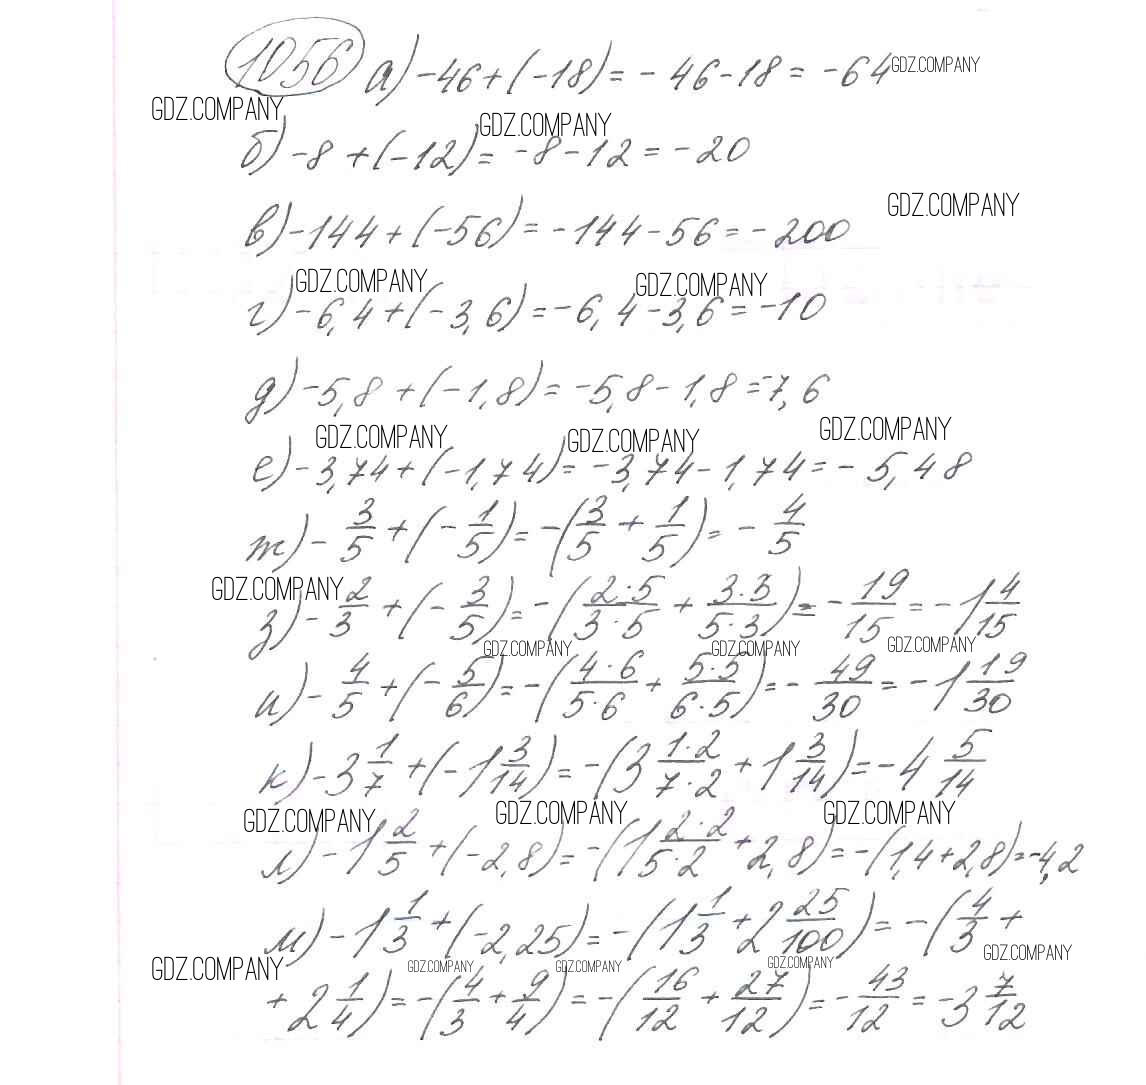 1056 а) -46 + (-18) = -46 - 18 = -64 GDZ.COMPANY
GDZ.COMPANY GDZ.COMPANY
б) -8 + (-12) = -8 - 12 = -20
GDZ.COMPANY
в) -144 + (-56) = -144 - 56 = -200
GDZ.COMPANY GDZ.COMPANY
г) -6,4 + (-3,6) = -6,4 - 3,6 = -10
д) -5,8 + (-1,8) = -5,8 - 1,8 = -7,6
GDZ.COMPANY GDZ.COMPANY GDZ.COMPANY
е) -3,74 + (-1,74) = -3,74 - 1,74 = -5,48
ж) - 3/5 + (- 1/5) = -(3/5 + 1/5) = - 4/5
GDZ.COMPANY
з) - 2/3 + (- 3/5) = -(2·5/3·5 + 3·3/5·3) = - 19/15 = -1 4/15
GDZ.COMPANY GDZ.COMPANY GDZ.COMPANY
и) - 4/5 + (- 5/6) = -(4·6/5·6 + 5·5/6·5) = - 49/30 = -1 19/30
к) -3 1/7 + (-1 3/14) = -(3 1·2/7·2 + 1 3/14) = -4 5/14
GDZ.COMPANY GDZ.COMPANY GDZ.COMPANY
л) -1 2/5 + (-2,8) = -(1 2·2/5·2 + 2,8) = -(1,4 + 2,8) = -4,2
м) -1 1/3 + (-2,25) = -(1 1/3 + 2 25/100) = -(4/3 +
GDZ.COMPANY GDZ.COMPANY GDZ.COMPANY GDZ.COMPANY GDZ.COMPANY
+ 2 1/4) = -(4/3 + 9/4) = -(16/12 + 27/12) = - 43/12 = -3 7/12